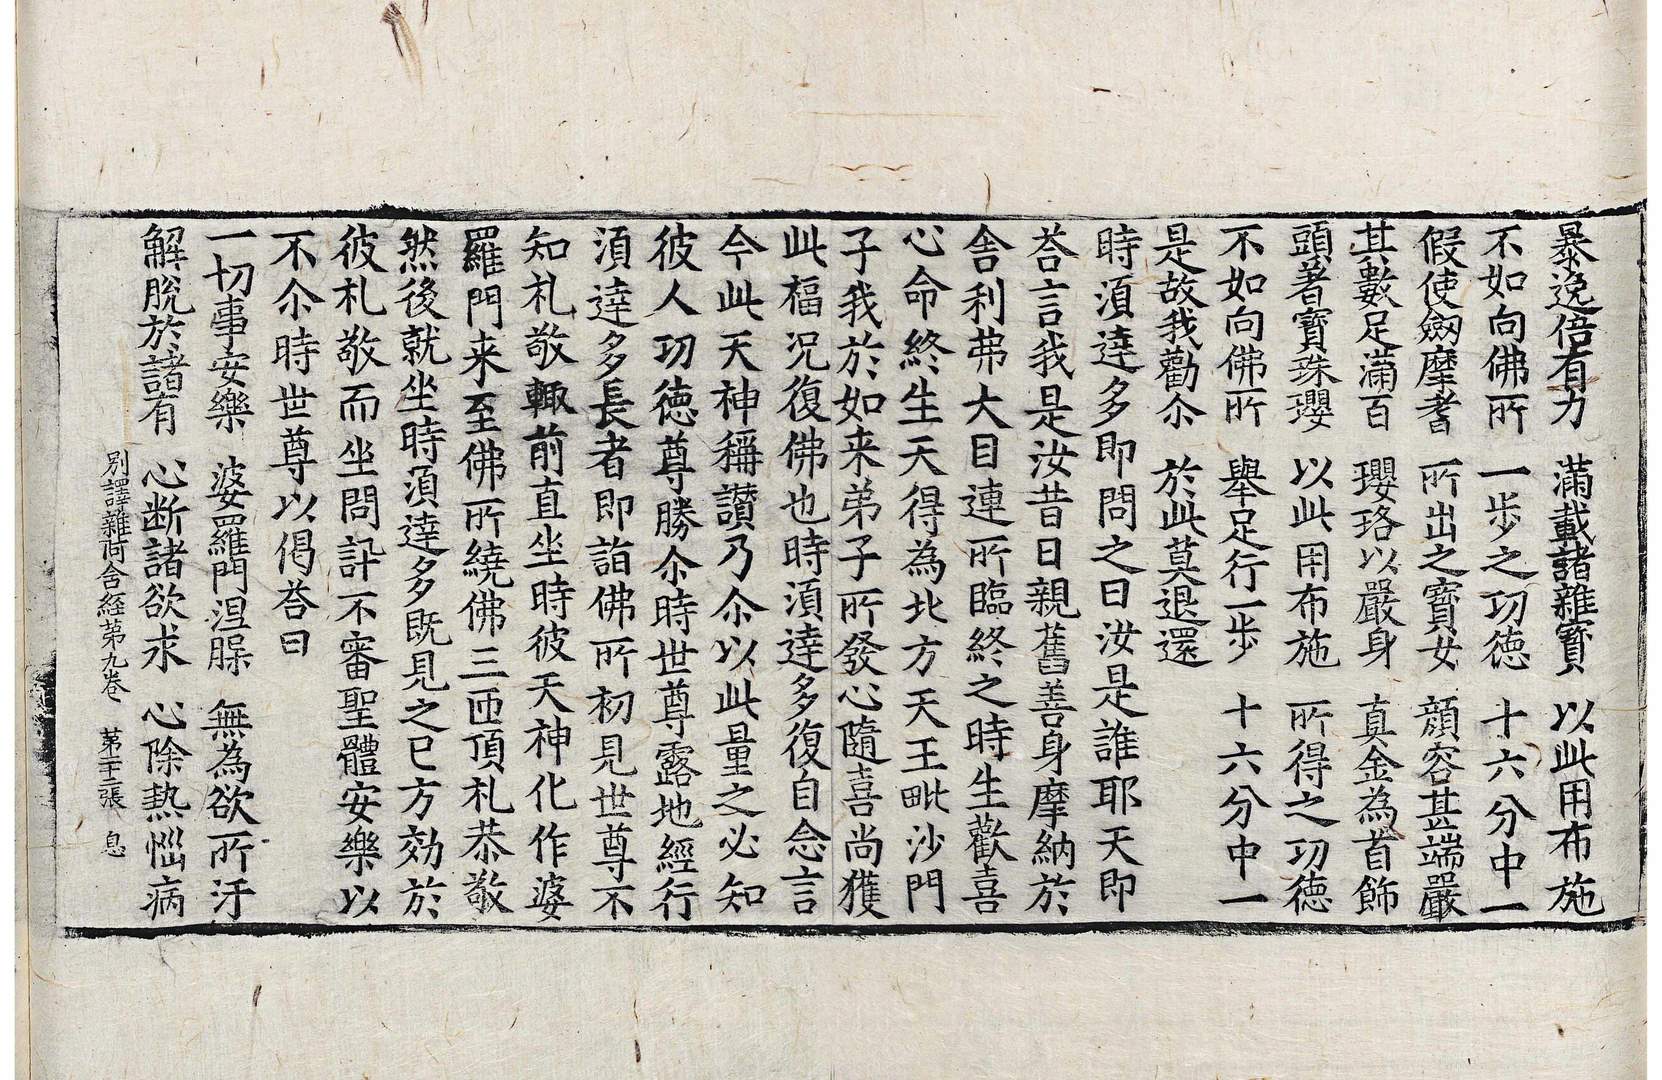 暴逸倍有力　滿載諸雜寶　以此用布施
不如向佛所　一步之功德　十六分中一
假使劔摩耆　所出之寶女　顔容甚端嚴
其數足滿百　瓔珞以嚴身　真金為首飾
頭著寶珠瓔　以此用布施　所得之功德
不如向佛所　舉足行一步　十六分中一
是故我勸尒　於此莫退還
時湏達多即問之曰汝是誰耶天即
荅言我是汝昔日親舊善身摩納於
舍利弗大目連所臨終之時生歡喜
心命終生天得為北方天王毗沙門
子我於如来弟子所發心隨喜尚獲
此福况復佛也時湏達多復自念言
今此天神稱讃乃尒以此量之必知
彼人功德尊勝尒時世尊露地經行
湏達多長者即詣佛所初見世尊不
知礼敬輙前直坐時彼天神化作婆
羅門来至佛所繞佛三匝頂礼恭敬
然後就坐時湏達多既見之已方効於
彼礼敬而坐問訊不審聖體安樂以
不尒時世尊以偈荅曰
一切事安樂　婆羅門涅䏶　無為欲所汙
解脫於諸有　心断諸欲求　心除熱惱病
別譯雜阿含経第九卷　第二十二張　息